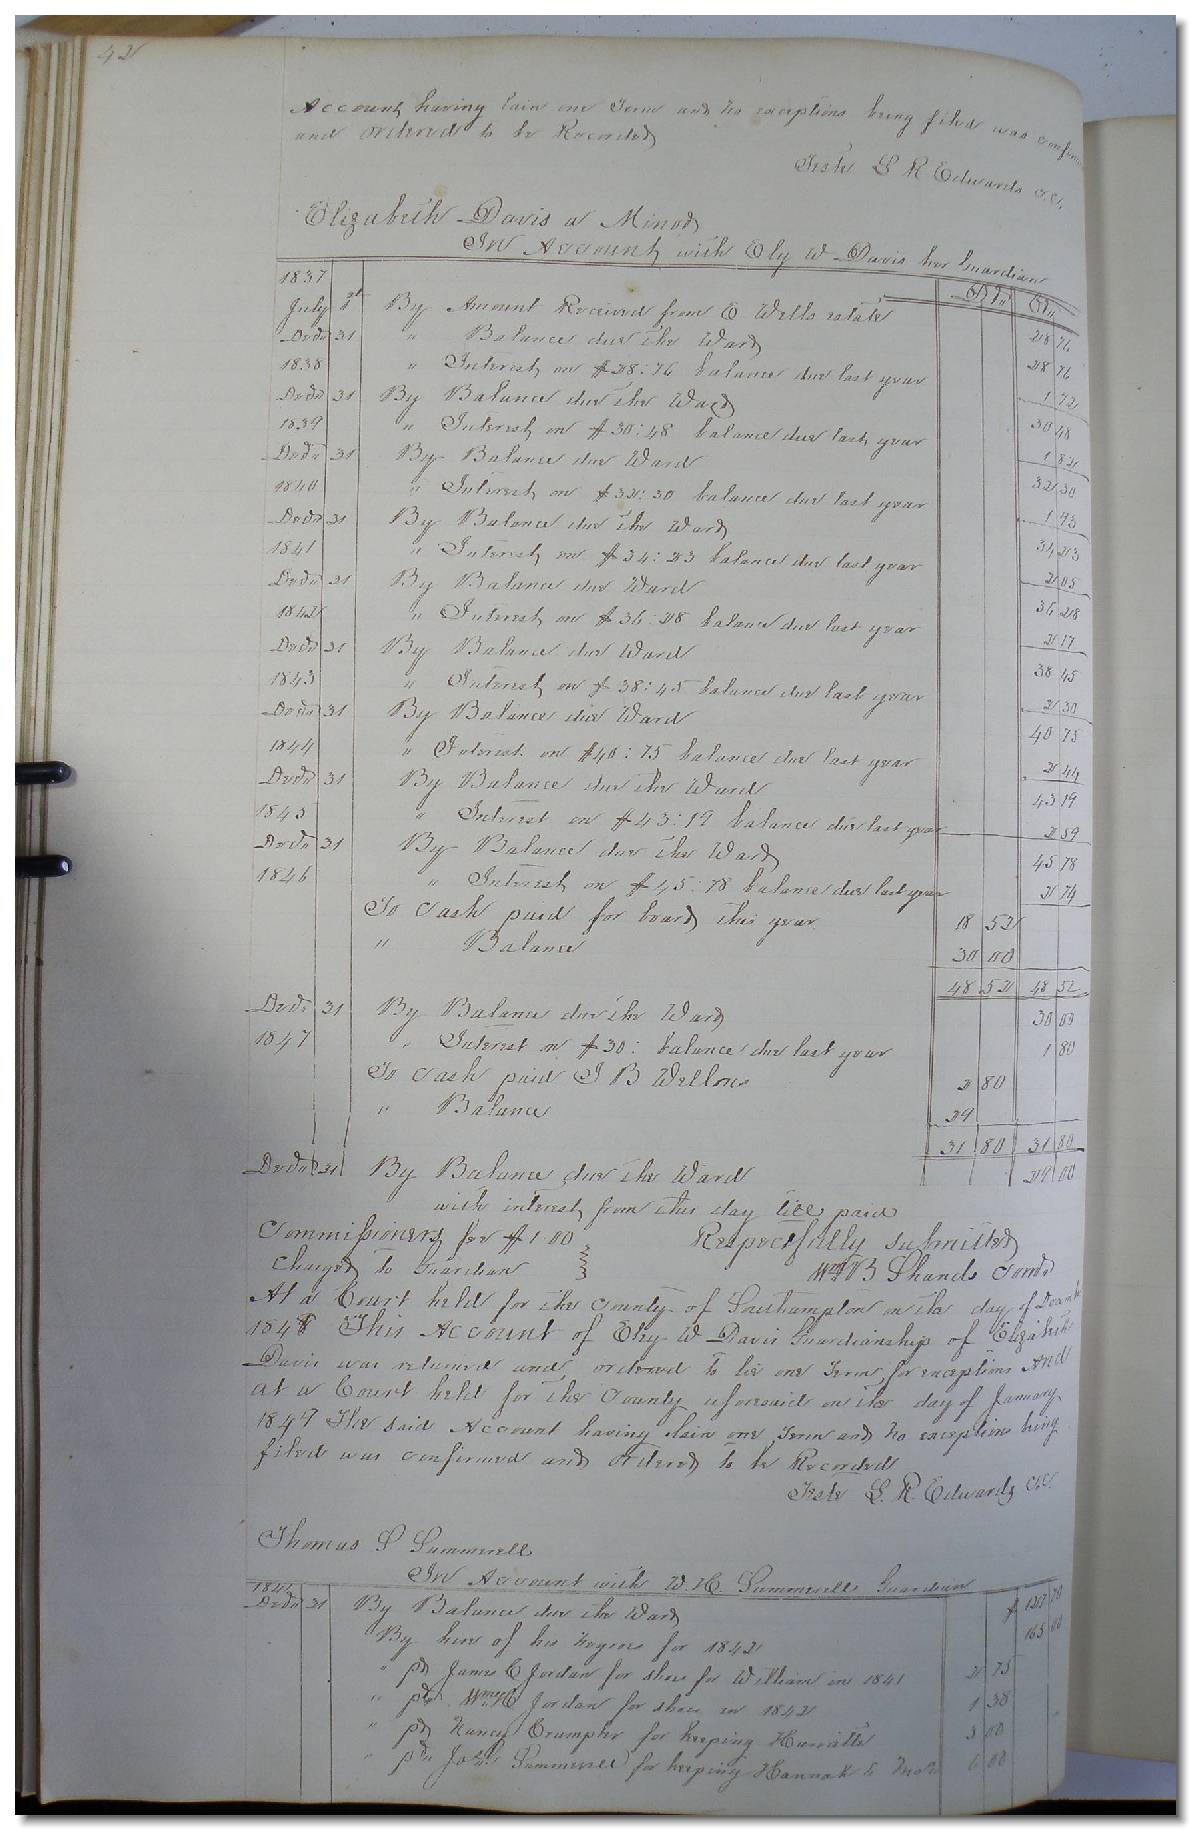 42
Account having lain one Term and no exceptions being filed was
and ordered to be Recorded
Teste L R Edwards
Elizabeth Davis a Minor
In Account with Ely W Davis her Guardian
1837 Dr Cr
July 1st By Amount Received from E Wells estate 28 76
Decr 31 " Balance due the Ward 28 76
1838 " Interest on $28:76 balance due last year 1 72
Decr 31 By Balance due the Ward 30 48
1839 " Interest on $30:48 balance due last year 1 82
Decr 31 By Balance due Ward 32 30
1840 " Interest on $32:30 balance due last year 1 93
Decr 31 By Balance due the Ward 34 23
1841 " Interest on $34:23 balance due last year 2 05
Decr 31 By Balance due Ward 36 28
1842 " Interest on $36:28 balance due last year 2 17
Decr 31 By Balance due Ward 38 45
1843 " Interest on $38:45 balance due last year 2 30
Decr 31 By Balance due Ward 40 75
1844 " Interest on $40:75 balance due last year 2 44
Decr 31 By Balance due the Ward 43 19
1845 " Interest on $43:19 balance due last year 2 59
Decr 31 By Balance due the Ward 45 78
1846 " Interest on $45:78 balance due last year 2 74
To Cash paid for board this year 18 52
" Balance 30 00
48 52 48 52
Decr 31 By Balance due the Ward 30 00
1847 " Interest on $30: balance due last year 1 80
To Cash paid J B Wellons 2 80
" Balance 29
31 80 31 80
Decr 31 By Balance due the Ward 29 00
with interest from this day till paid
Commissioners fee $1 00 Respectfully submitted
Charged to Guardian Wm B Shands Comr
At a Court held for the County of Southampton on the day of
1848 This Account of Ely W Davis Guardianship of Elizabeth
Davis was returned and ordered to lie one Term for exceptions And
at a Court held for the County aforesaid on the day of January
1849 The said Account having lain one Term and no exceptions being
filed was confirmed and ordered to be Recorded
Teste L. R. Edwards
Thomas S Summerell
In Account with W. H. Summerell Guardian
Decr 31 By Balance due the Ward
" By hire of his negroes for 1842 165 00
" pd James E Jordan for shoes for William in 1841 2 75
" pd Jordan for shoes in 1842 1 38
" pd Nancy for keeping Harriett 3 00
" pd Summerell for keeping Hannah & 6 00